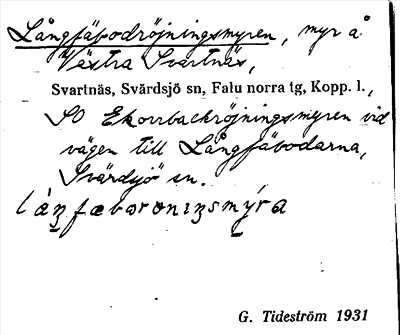 Långfäbodröjningsmyren, myr å
Västra Svartnäs,
Svartnäs, Svärdsjö sn, Falu norra tg, Kopp. l.,
SO Ekorrbackröjningsmyren vid
vägen till Långfäbodarna,
Svärdsjö sn.
G. Tideström 1931